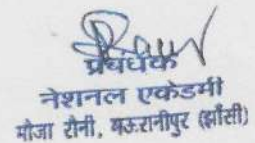 प्रबंधक
नेशनल एकेडमी
मौजा रौनी, मऊरानीपुर (झाँसी)